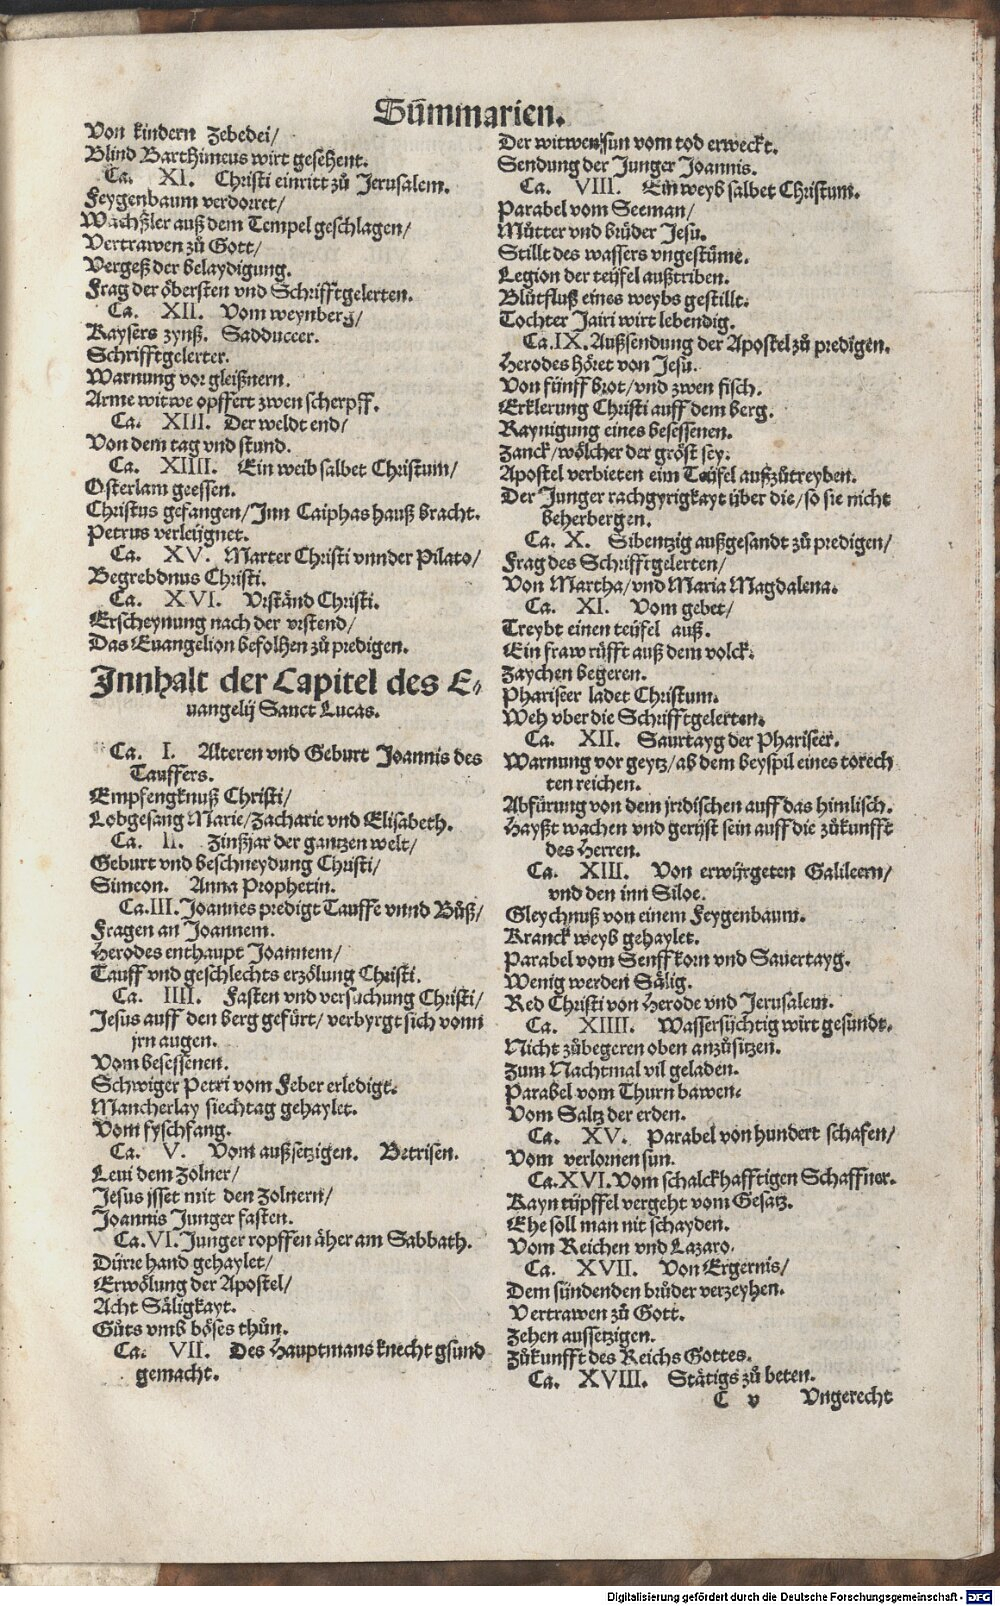 Sum̃marien.
Von kindern Zebedei/
Blind Barthimeus wirt gesehent.
Ca. XI. Christi einritt zů Jerusalem.
Feygenbaum verdorret/
Wächßler auß dem Tempel geschlagen/
Vertrawen zů Gott/
Vergeß der belaydigung.
Frag der öbersten vnd Schrifftgelerten.
Ca. XII. Vom weynberg/
Kaysers zynß. Sadduceer.
Schrifftgelerter.
Warnung vor gleißnern.
Arme witwe opffert zwen scherpff.
Ca. XIII. Der weldt end/
Von dem tag vnd stund.
Ca. XIIII. Ein weib salbet Christum/
Osterlam geessen.
Christus gefangen/Inn Caiphas hauß bracht.
Petrus verleügnet.
Ca. XV. Marter Christi vnnder Pilato/
Begrebdnus Christi.
Ca. XVI. Vrständ Christi.
Erscheynung nach der vrstend/
Das Euangelion befolhen zů predigen.
Innhalt der Capitel des E-
uangelij Sanct Lucas.
Ca. I. Alteren vnd Geburt Joannis des
Tauffers.
Empfengknuß Christi/
Lobgesang Marie/Zacharie vnd Elisabeth.
Ca. II. Zinßjar der gantzen welt/
Geburt vnd beschneydung Christi/
Simeon. Anna Prophetin.
Ca.III. Joannes predigt Tauffe vnnd Bůß/
Fragen an Joannem.
Herodes enthaupt Joannem/
Tauff vnd geschlechts erzölung Christi.
Ca. IIII. Fasten vnd versuchung Christi/
Jesus auff den berg gefürt/ verbyrgt sich vonn
jrn augen.
Vom besessenen.
Schwiger Petri vom Feber erledigt.
Mancherlay siechtag gehaylet.
Vom fyschfang.
Ca. V. Vom außsetzigen. Betrisen.
Leui dem Zolner/
Jesus jsset mit den Zolnern/
Joannis Junger fasten.
Ca.VI. Junger ropffen äher am Sabbath.
Dürre hand gehaylet/
Erwölung der Apostel/
Acht Säligkayt.
Gůts vmb böses thůn.
Ca. VII. Des Hauptmans knecht gsund
gemacht.
Der witwen sun vom tod erweckt.
Sendung der Junger Joannis.
Ca. VIII. Ein weyb salbet Christum.
Parabel vom Seeman/
Můtter vnd brůder Jesu.
Stillt des wassers vngestüme.
Legion der teüfel außtriben.
Blůtfluß eines weybs gestillt.
Tochter Jairi wirt lebendig.
Ca.IX. Außsendung der Apostel zů predigen.
Herodes höret von Jesu.
Von fünff brot/vnd zwen fisch.
Erklerung Christi auff dem berg.
Raynigung eines besessenen.
Zanck/wölcher der gröst sey.
Apostel verbieten eim Teüfel außzůtreyben.
Der Junger rachgyrigkayt über die/so sie nicht
beherbergen.
Ca. X. Sibentzig außgesandt zů predigen/
Frag des Schrifftgelerten/
Von Martha/vnd Maria Magdalena.
Ca. XI. Vom gebet/
Treybt einen teüfel auß.
Ein fraw růfft auß dem volck.
Zaychen begeren.
Phariseer ladet Christum.
Weh vber die Schrifftgelerten.
Ca. XII. Saurtayg der Phariseer.
Warnung vor geytz/ab dem beyspil eines torech
ten reichen.
Abfürung von dem jrdischen auff das himlisch.
Hayßt wachen vnd gerüst sein auff die zůkunfft
des Herren.
Ca. XIII. Von erwürgeten Galileern/
vnd den inn Siloe.
Gleychnuß von einem Feygenbaum.
Kranck weyb gehaylet.
Parabel vom Senff korn vnd Sauertayg.
Wenig werden Sälig.
Red Christi von Herode vnd Jerusalem.
Ca. XIIII. Wassersüchtig wirt gesundt.
Nicht zůbegeren oben anzůsitzen.
Zum Nachtmal vil geladen.
Parabel vom Thurn bawen.
Vom Saltz der erden.
Ca. XV. Parabel von hundert schafen/
Vom verlornen sun.
Ca.XVI. Vom schalckhafftigen Schaffner.
Kayn tüpffel vergeht vom Gesatz.
Ehe soll man nit schayden.
Vom Reichen vnd Lazaro.
Ca. XVII. Von Ergernis/
Dem sündenden brůder verzeyhen.
Vertrawen zů Gott.
Zehen aussetzigen.
Zůkunfft des Reichs Gottes.
Ca. XVIII. Stätigs zů beten.
C v Vngerecht
Digitalisierung gefördert durch die Deutsche Forschungsgemeinschaft - DFG